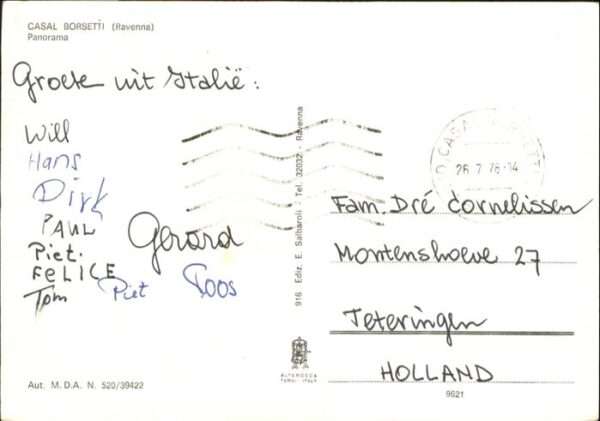 CASAL BORSETTI (Ravenna)
Panorama
Groete uit Italië:
Will
Hans
Dirk
PAUL
Gerard
Piet.
FeLICE
Tom
Piet
Toos
916 Ediz. E. Salbaroli - Tel. 32032 - Ravenna
26.7.76-14
Fam. Dré Cornelissen
Montenshoeve 27
Teteringen
HOLLAND
ALTEROCCA
TERNI ITALY
Aut. M.D.A. N. 520/39422
9621